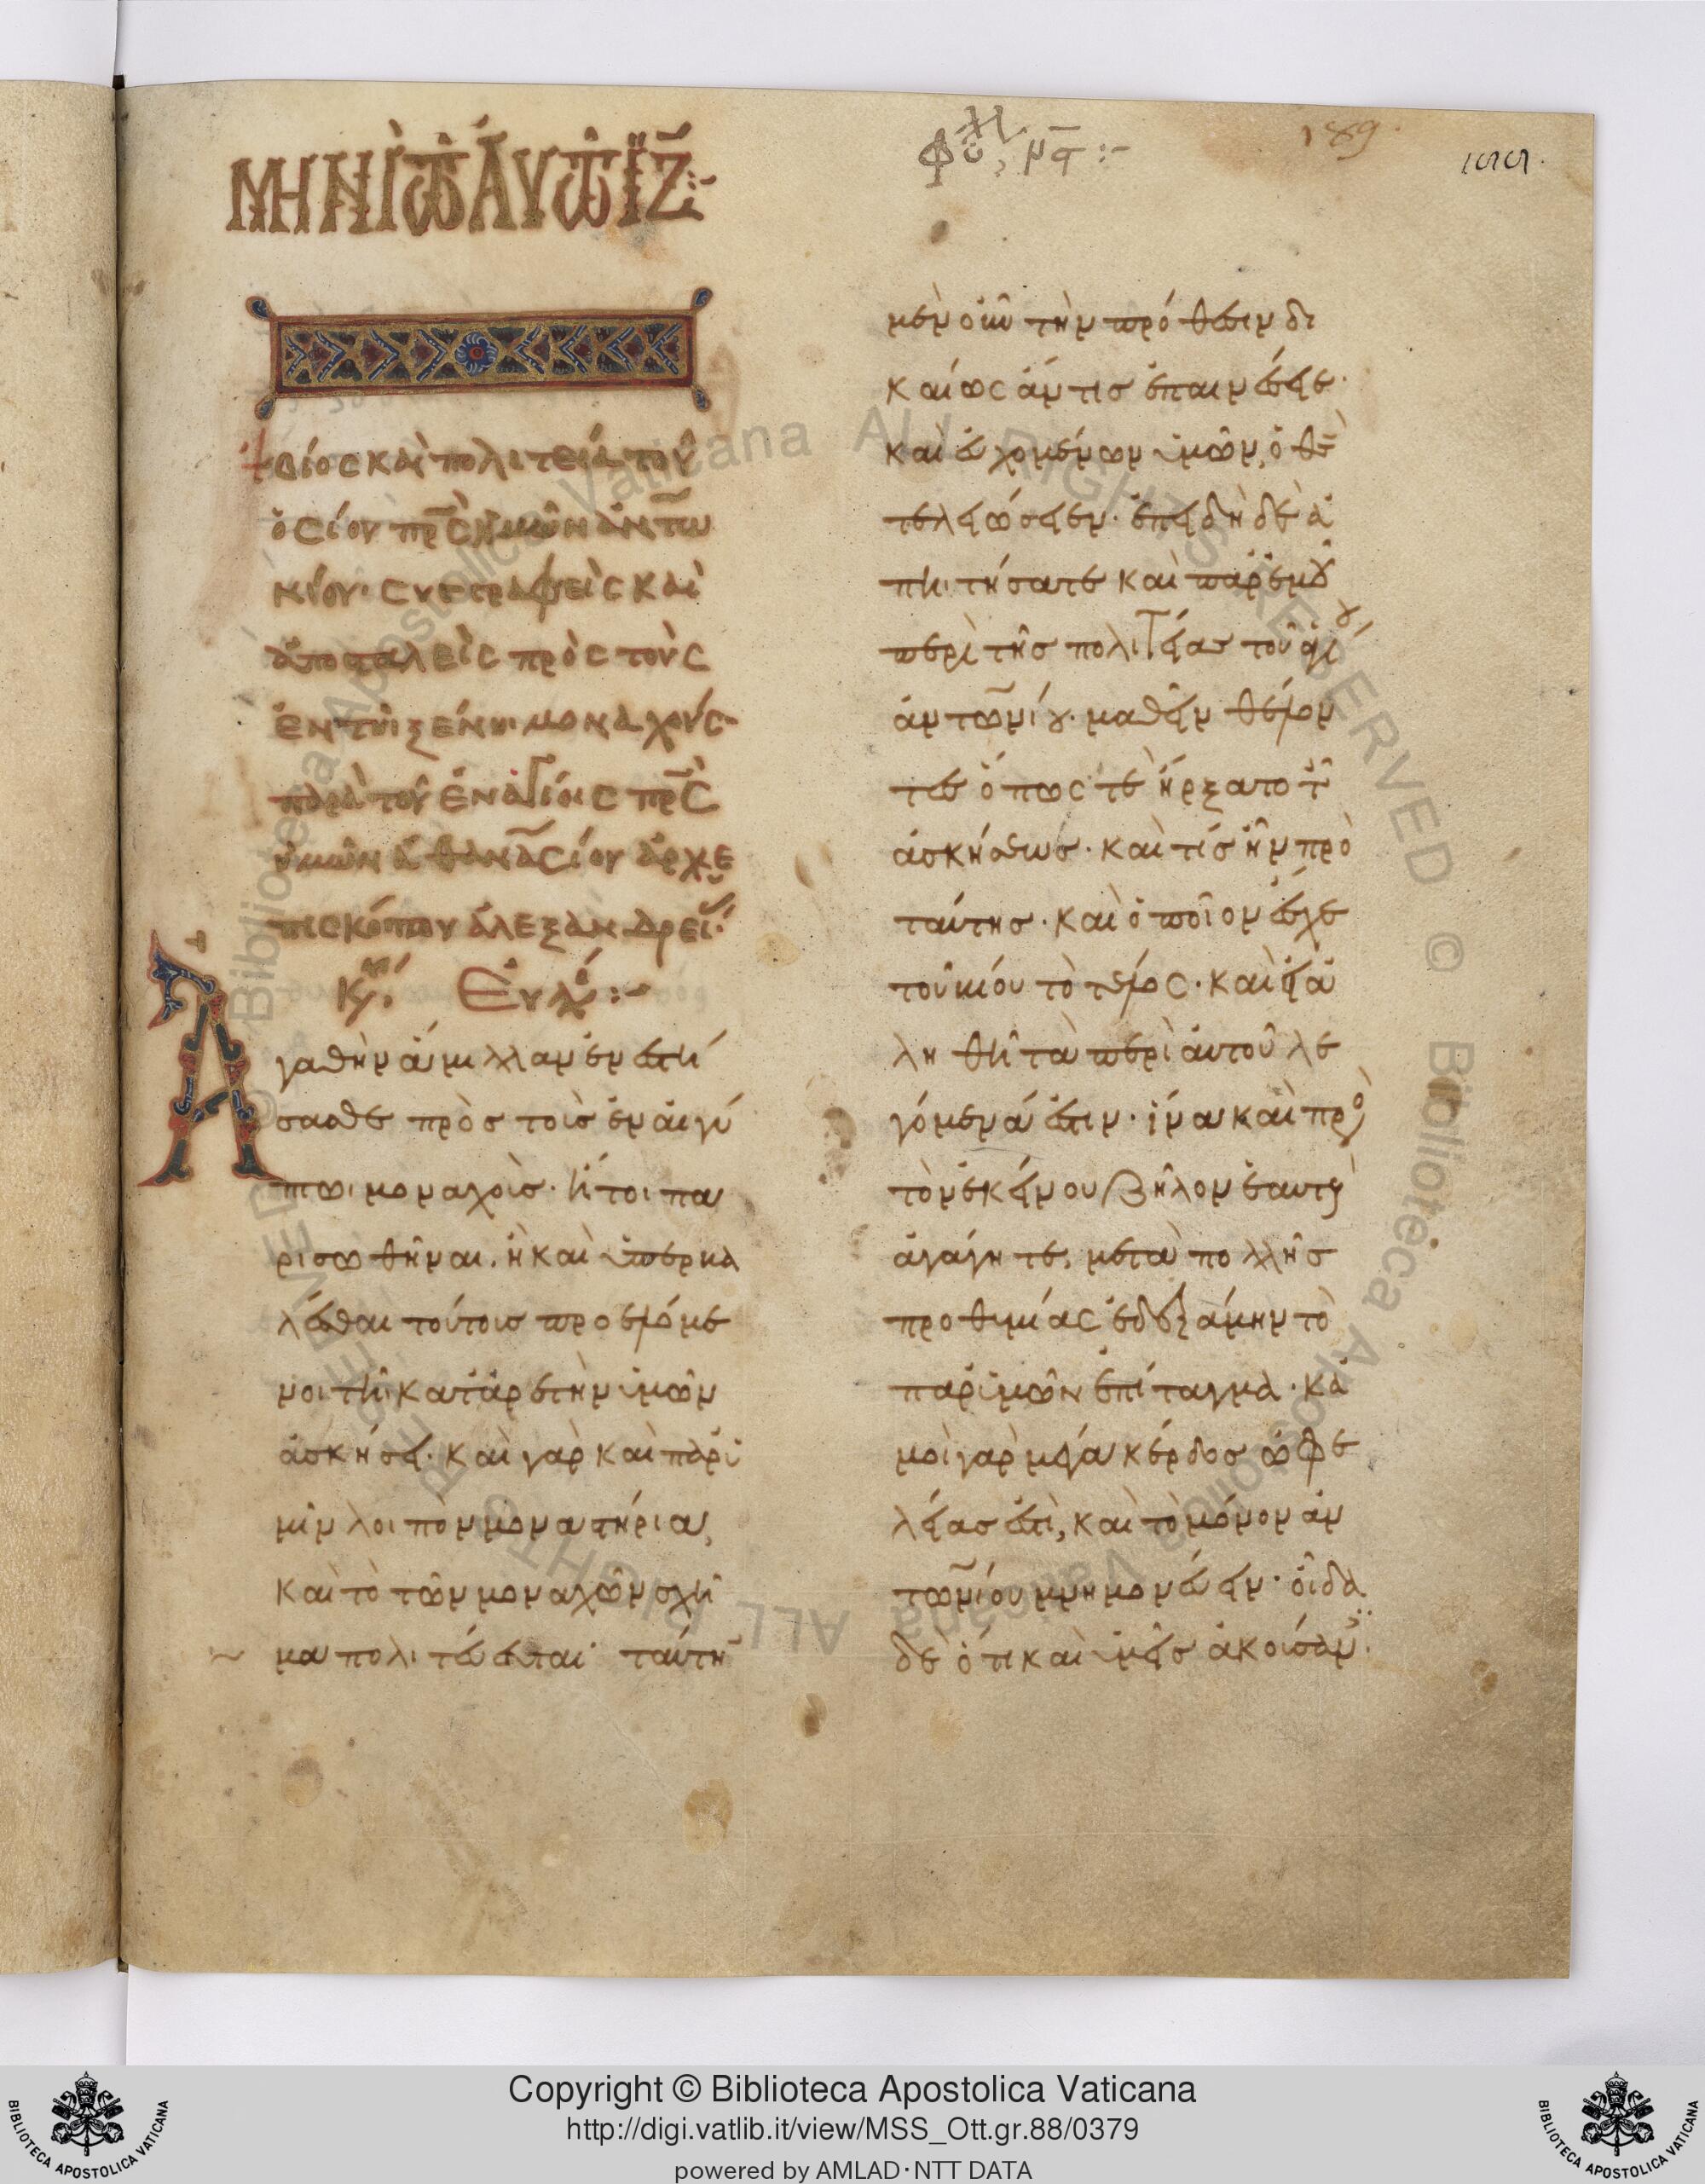 ΜΗΝΙ ΤΩ ΑΥΤΩ ΙΖ:-
189.
βίος καὶ πολιτεία τοῦ
ὁσίου πρς ἡμῶν ἀντω
νίου· συγγραφεὶς καὶ
ἀποσταλεὶς πρὸς τοὺς
ἐν τῆι ξένηι μοναχοὺς
παρὰ τοῦ ἐν ἁγίοις πρς
ἡμῶν ἀθανασίου ἀρχιε
πισκόπου ἀλεξανδρεί
Εὐλό:-
Ἀγαθὴν ἅμιλλαν ἐνεστή
σασθε πρὸς τοὺς ἐν αἰγύ
πτωι μοναχοὺς· ἤτοι πα
ρισωθῆναι, ἢ καὶ ὑπερβα
λέσθαι τούτους προελόμε
νοι τῆι κατ' ἀρετὴν ὑμῶν
ἀσκήσει· καὶ γὰρ καὶ παρ' ὑ
μῖν λοιπὸν μοναστήρια,
καὶ τὸ τῶν μοναχῶν σχῆ
μα πολιτεύεται· ταύτη
μὲν οὖν τὴν πρόθεσιν δι
καίως ἄν τις ἐπαινέσειε·
καὶ εὐχομένων ὑμῶν, ὁ θς
τελειώσειεν· ἐπειδὴ δὲ ἀ
πηιτήσατε καὶ παρ' ἐμοῦ
περὶ τῆς πολιτείας τοῦ ἁγί
ἀντωνίου· μαθεῖν θέλον
τες ὅπως τε ἤρξατο τ
ἀσκήσεως· καὶ τίς ἦν πρὸ
ταύτης· καὶ ὁποῖον ἔσχε
τοῦ βίου τὸ τέλος· καὶ εἰ ἀ
ληθῆ τὰ περὶ αὐτοῦ λε
γόμενά ἐστιν· ἵνα καὶ πρὸ
τὸν ἐκείνου ζῆλον ἑαυτοὺ
ἀγάγητε, μετὰ πολλῆς
προθυμίας ἐδεξάμην τὸ
παρ' ὑμῶν ἐπίταγμα· κἀ
μοὶ γὰρ μέγα κέρδος ὠφε
λείας ἐστὶ, καὶ τὸ μόνον ἀν
τωνίου μνημονεύειν· οἶδα
δὲ ὅτι καὶ ὑμεῖς ἀκούσαν
Copyright © Biblioteca Apostolica Vaticana
http://digi.vatlib.it/view/MSS_Ott.gr.88/0379
powered by AMLAD·NTT DATA
BIBLIOTECA APOSTOLICA VATICANA
BIBLIOTECA APOSTOLICA VATICANA